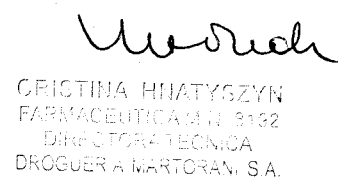 CRISTINA HNATYSZYN
FARMACEUTICA M.N. 9192
DIRECTORA TECNICA
DROGUERIA MARTORANI S.A.